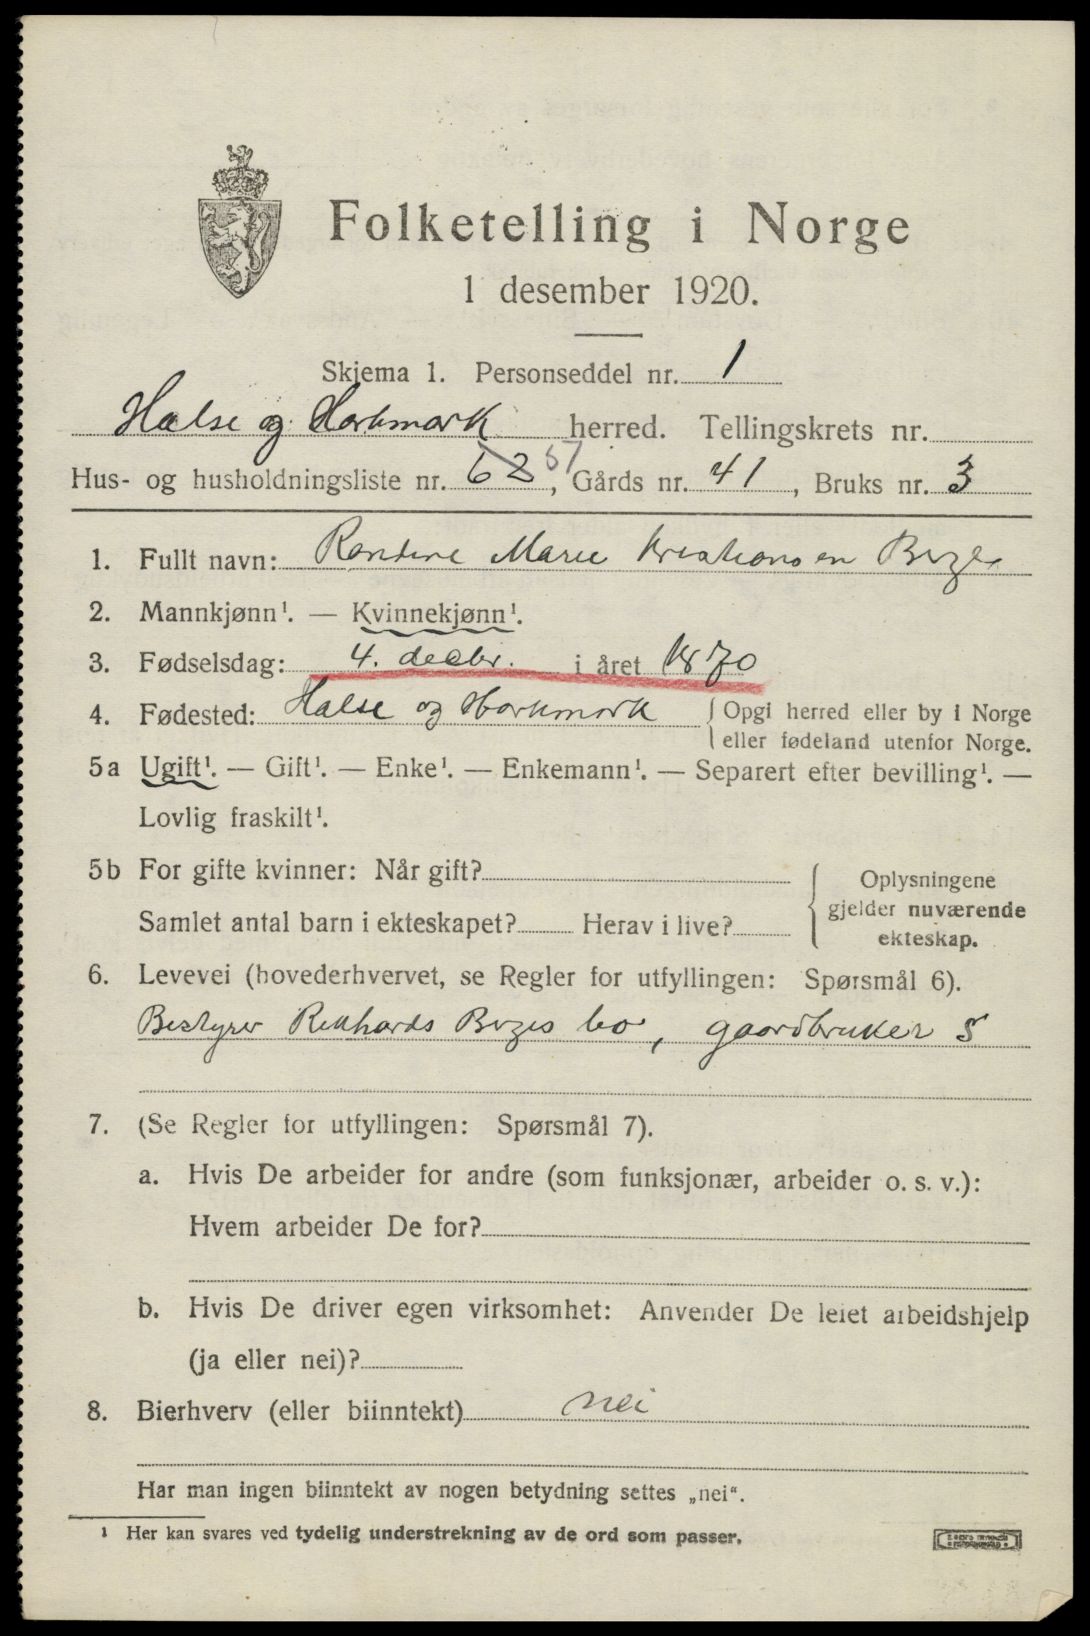 Folketelling i Norge
1 desember 1920.
Skjema 1. Personseddel nr. 1
Halse og Harkmark herred. Tellingskrets nr.
Hus- og husholdningsliste nr. 62 57, Gårds nr. 41, Bruks nr. 3
1. Fullt navn: Marie Kristiansen
2. Mannkjønn¹. — Kvinnekjønn¹.
3. Fødselsdag: 4. decbr. i året 1870
4. Fødested: Halse og Harkmark { Opgi herred eller by i Norge
eller fødeland utenfor Norge.
5a Ugift¹. — Gift¹. — Enke¹. — Enkemann¹. — Separert efter bevilling¹. —
Lovlig fraskilt¹.
5b For gifte kvinner: Når gift?
Samlet antal barn i ekteskapet? Herav i live?
{ Oplysningene
gjelder nuværende
ekteskap.
6. Levevei (hovederhvervet, se Regler for utfyllingen: Spørsmål 6).
Bestyrer bo, gaardbruker S
7. (Se Regler for utfyllingen: Spørsmål 7).
a. Hvis De arbeider for andre (som funksjonær, arbeider o. s. v.):
Hvem arbeider De for?
b. Hvis De driver egen virksomhet: Anvender De leiet arbeidshjelp
(ja eller nei)?
8. Bierhverv (eller biinntekt) nei
Har man ingen biinntekt av nogen betydning settes „nei“.
¹ Her kan svares ved tydelig understrekning av de ord som passer.